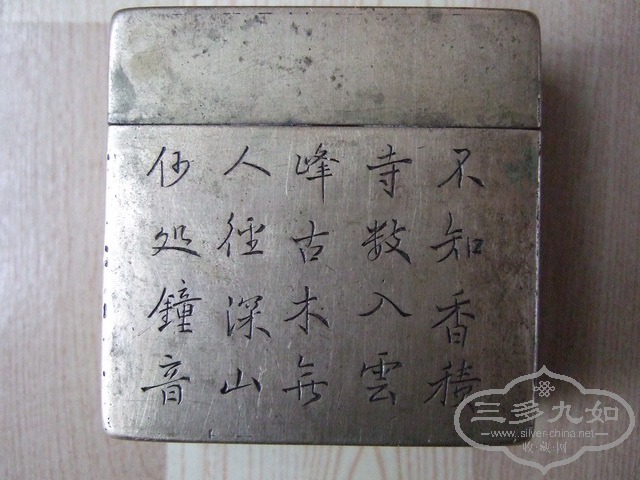 不知香積
寺数入雲
峰古木無
人徑深山
何处鐘音
三多九如
www.silver-china.net
收·藏·网